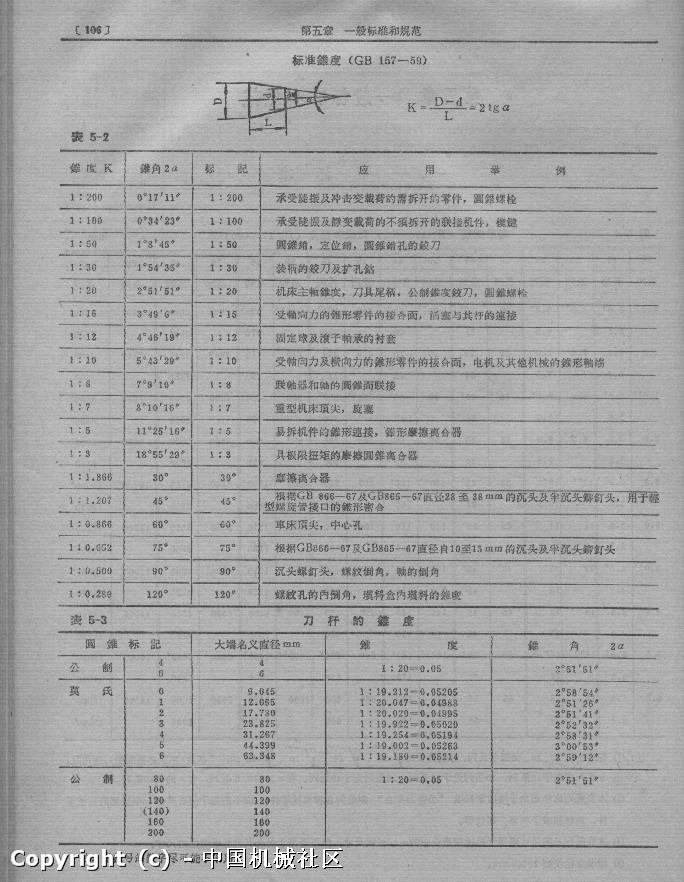 〔106〕 第五章 一般标准和規范
标准錐度（GB 157—59）
D d L α
K = D−d / L = 2 tg α
表 5-2
錐度 K 錐角 2α 标 記 应 用 举 例
1：200 0°17′11″ 1：200 承受陡振及冲击变載荷的需拆开的零件，圓錐螺栓
1：100 0°34′23″ 1：100 承受陡振及靜变載荷的不須拆开的联接机件，楔鍵
1：50 1°8′45″ 1：50 圓錐銷，定位銷，圓錐銷孔的鉸刀
1：30 1°54′35″ 1：30 装柄的鉸刀及扩孔鉆
1：20 2°51′51″ 1：20 机床主軸錐度，刀具尾柄，公制錐度鉸刀，圓錐螺栓
1：15 3°49′6″ 1：15 受軸向力的錐形零件的接合面，活塞与其杆的連接
1：12 4°46′19″ 1：12 固定球及滾子軸承的衬套
1：10 5°43′29″ 1：10 受軸向力及橫向力的錐形零件的接合面，电机及其他机械的錐形軸端
1：8 7°9′10″ 1：8 联軸器和軸的圓錐面联接
1：7 8°10′16″ 1：7 重型机床頂尖，旋塞
1：5 11°25′16″ 1：5 易拆机件的錐形連接，錐形摩擦离合器
1：3 18°55′29″ 1：3 具极限扭矩的摩擦圓錐离合器
1：1.866 30° 30° 摩擦离合器
1：1.207 45° 45° 根据GB 866—67及GB865—67直径28至38mm的沉头及半沉头鉚釘头，用于輕
型螺旋管接口的錐形密合
1：0.866 60° 60° 車床頂尖，中心孔
1：0.652 75° 75° 根据GB866—67及GB865—67直径自10至13mm的沉头及半沉头鉚釘头
1：0.500 90° 90° 沉头螺釘头，螺紋倒角，軸的倒角
1：0.289 120° 120° 螺紋孔的內倒角，填料盒內填料的錐度
表 5-3 刀 杆 的 錐 度
圓 錐 标 記 大端名义直径mm 錐 度 錐 角 2α
公 制 4 4 1：20=0.05 2°51′51″
6 6
莫 氏 0 9.045 1：19.212=0.05205 2°58′54″
1 12.065 1：20.047=0.04988 2°51′26″
2 17.780 1：20.020=0.04995 2°51′41″
3 23.825 1：19.922=0.05020 2°52′32″
4 31.267 1：19.254=0.05194 2°58′31″
5 44.399 1：19.002=0.05263 3°00′53″
6 63.348 1：19.180=0.05214 2°59′12″
公 制 80 80 1：20=0.05 2°51′51″
100 100
120 120
(140) 140
160 160
200 200
尽可能
Copyright (c) - 中国机械社区